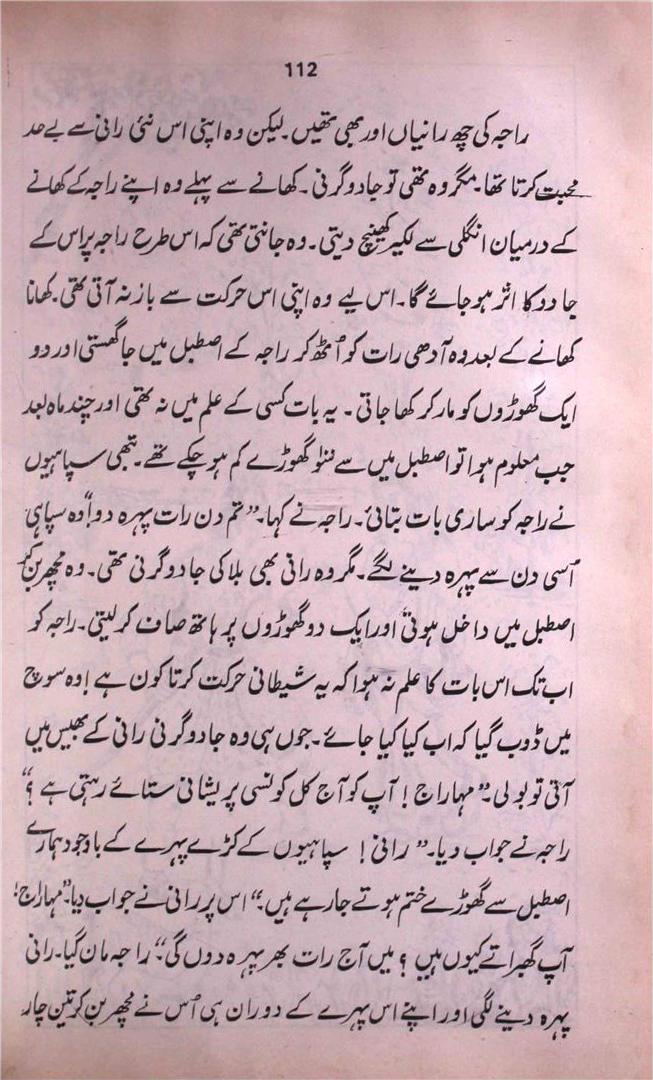 112
راجہ کی چھ رانیاں اور بھی تھیں۔ لیکن وہ اپنی اس نئی رانی سے بے حد
محبت کرتا تھا۔ مگر وہ تھی تو جادوگرنی۔ کھانے سے پہلے وہ اپنے راجہ کے کھانے
کے درمیان انگلی سے لکیر کھینچ دیتی۔ وہ جانتی تھی کہ اس طرح راجہ پر اس کے
جادو کا اثر ہو جائے گا۔ اس لیے وہ اپنی اس حرکت سے باز نہ آتی تھی۔ کھانا
کھانے کے بعد وہ آدھی رات کو اُٹھ کر راجہ کے اصطبل میں جا گھستی اور دو
ایک گھوڑوں کو مار کر کھا جاتی۔ یہ بات کسی کے علم میں نہ تھی اور چند ماہ بعد
جب معلوم ہوا تو اصطبل میں سے ننو گھوڑے کم ہو چکے تھے۔ تبھی سپاہیوں
نے راجہ کو ساری بات بتائی۔ راجہ نے کہا۔ ”تم دن رات پہرہ دو!“ وہ سپاہی
اُسی دن سے پہرہ دینے لگے۔ مگر وہ رانی بھی بلا کی جادوگرنی تھی۔ وہ مچھر بن کر
اصطبل میں داخل ہوتی اور ایک دو گھوڑوں پر ہاتھ صاف کر لیتی۔ راجہ کو
اب تک اس بات کا علم نہ ہوا کہ یہ شیطانی حرکت کرتا کون ہے! وہ سوچ
میں ڈوب گیا کہ اب کیا کیا جائے۔ جوں ہی وہ جادوگرنی رانی کے بھیس میں
آتی تو بولی۔ ”مہاراج! آپ کو آج کل کونسی پریشانی ستائے رہتی ہے؟“
راجہ نے جواب دیا۔ ”رانی! سپاہیوں کے کڑے پہرے کے باوجود ہمارے
اصطبل سے گھوڑے ختم ہوتے جا رہے ہیں۔“ اس پر رانی نے جواب دیا۔ ”مہاراج!
آپ گھبراتے کیوں ہیں؟ میں آج رات بھر پہرہ دوں گی“۔ راجہ مان گیا۔ رانی
پہرہ دینے لگی اور اپنے اس پہرے کے دوران ہی اُس نے مچھر بن کر تین چار